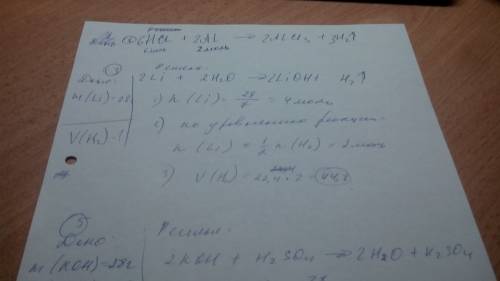 Решение
Дано ② 6HCl + 2Al → 2AlCl₃ + 3H₂↑
6 моль 2 моль
③
Дано: Решение:
m(Li)=28 2Li + 2H₂O → 2LiOH + H₂↑
V(H₂)-? 1) n (Li) = 28/7 = 4 моль
2) по уравнению реакции
n (Li) = 1/2 n(H₂) = 2 моль
3) V(H₂) = 22,4 · 2 = 44,8
⑤
Дано: Решение:
m(KOH)=28г 2KOH + H₂SO₄ → 2H₂O + K₂SO₄